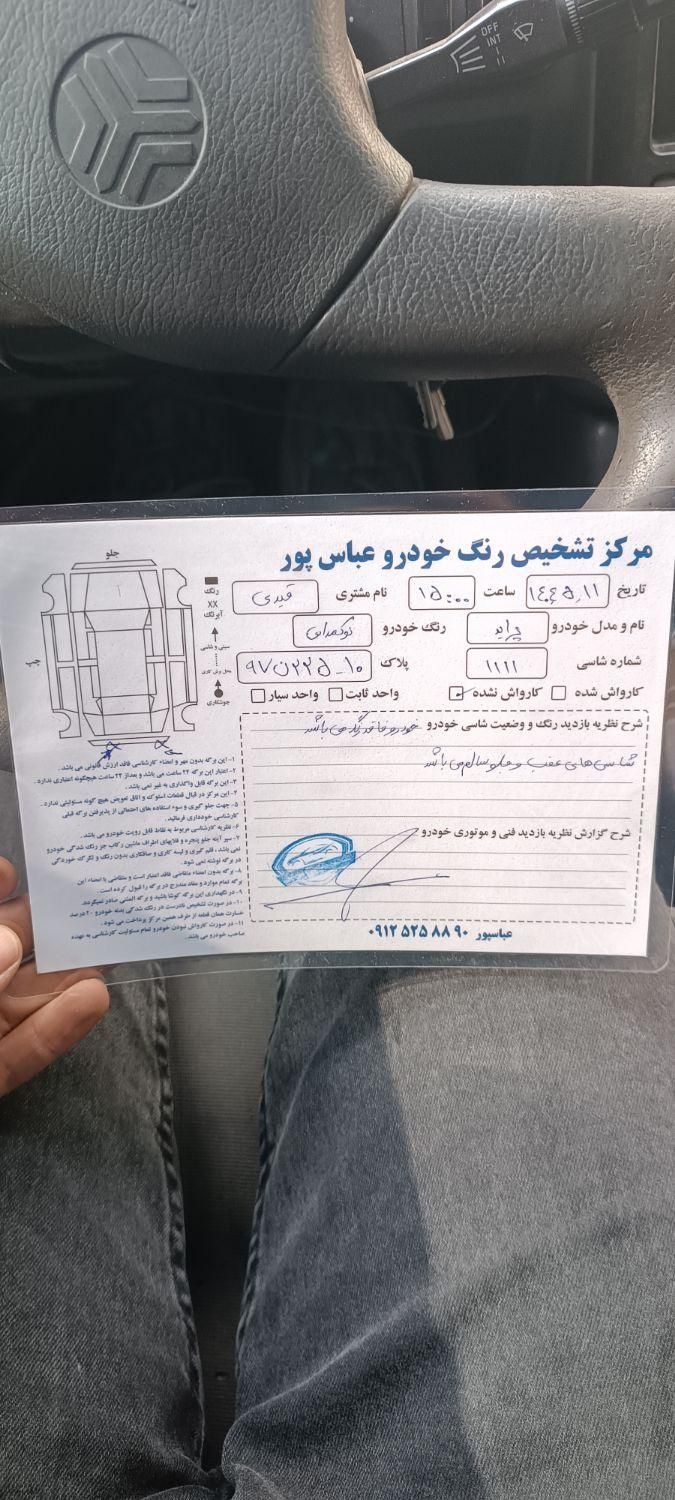 OFF
INT
مرکز تشخیص رنگ خودرو عباس پور
تاریخ ساعت ۱۵:۰۰ نام مشتری قیدی
نام و مدل خودرو پراید رنگ خودرو نوکمدادی
شماره شاسی ۱۱۱۱ پلاک ۹۷ن۲۲۵-۱۰
کارواش شده کارواش نشده واحد ثابت واحد سیار
شرح نظریه بازدید رنگ و وضعیت شاسی خودرو خودرو فاقد رنگ می باشد
شاسی های عقب و جلو سالم می باشد
شرح گزارش نظریه بازدید فنی و موتوری خودرو
عباسپور ۰۹۱۲ ۵۲۵ ۸۸ ۹۰
جلو
رنگ
XX
آبرنگ
سینی و شاسی
محل برش کاری
جوشکاری
۱- این برگه بدون مهر و امضاء کارشناسی فاقد ارزش قانونی می باشد.
۲- اعتبار این برگه ۲۴ ساعت می باشد و بعد از ۲۴ ساعت هیچگونه اعتباری ندارد.
۳- این برگه قابل واگذاری به غیر نمی باشد.
۴- این مرکز در قبال قطعات استوک و اتاق تعویض هیچ گونه مسئولیتی ندارد.
۵- جهت جلو گیری و سوء استفاده های احتمالی از پذیرفتن برگه قبلی
کارشناسی خودداری فرمائید.
۶- نظریه کارشناسی مربوط به نقاط قابل رویت خودرو می باشد.
۷- سپر آینه جلو پنجره و قلابهای اطراف ماشین رکاب جز رنگ شدگی خودرو
نمی باشد، قلم گیری و لیسه کاری و صافکاری بدون رنگ و تگرگ خوردگی
در برگه نوشته نمی شود.
۸- برگه بدون امضاء متقاضی فاقد اعتبار است و متقاضی با امضاء این
برگه تمام موارد و مفاد مندرج در برگه را قبول کرده است.
۹- در نگهداری این برگه کوشا باشید و برگه المثنی صادر نمیگردد.
۱۰- در صورت تشخیص نادرست در رنگ شدگی بدنه خودرو ۲۰ درصد
خسارت همان قطعه از طرف همین مرکز پرداخت می شود.
۱۱- در صورت کارواش نبودن خودرو تمام مسئولیت کارشناسی به عهده
صاحب خودرو می باشد.